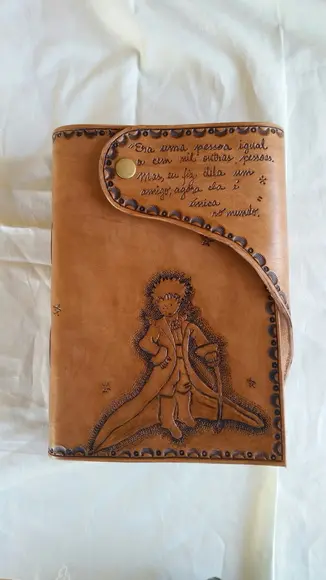 "Era uma pessoa igual
a cem mil outras pessoas.
Mas, eu fiz dela um
amigo, agora ela é
única
no mundo."